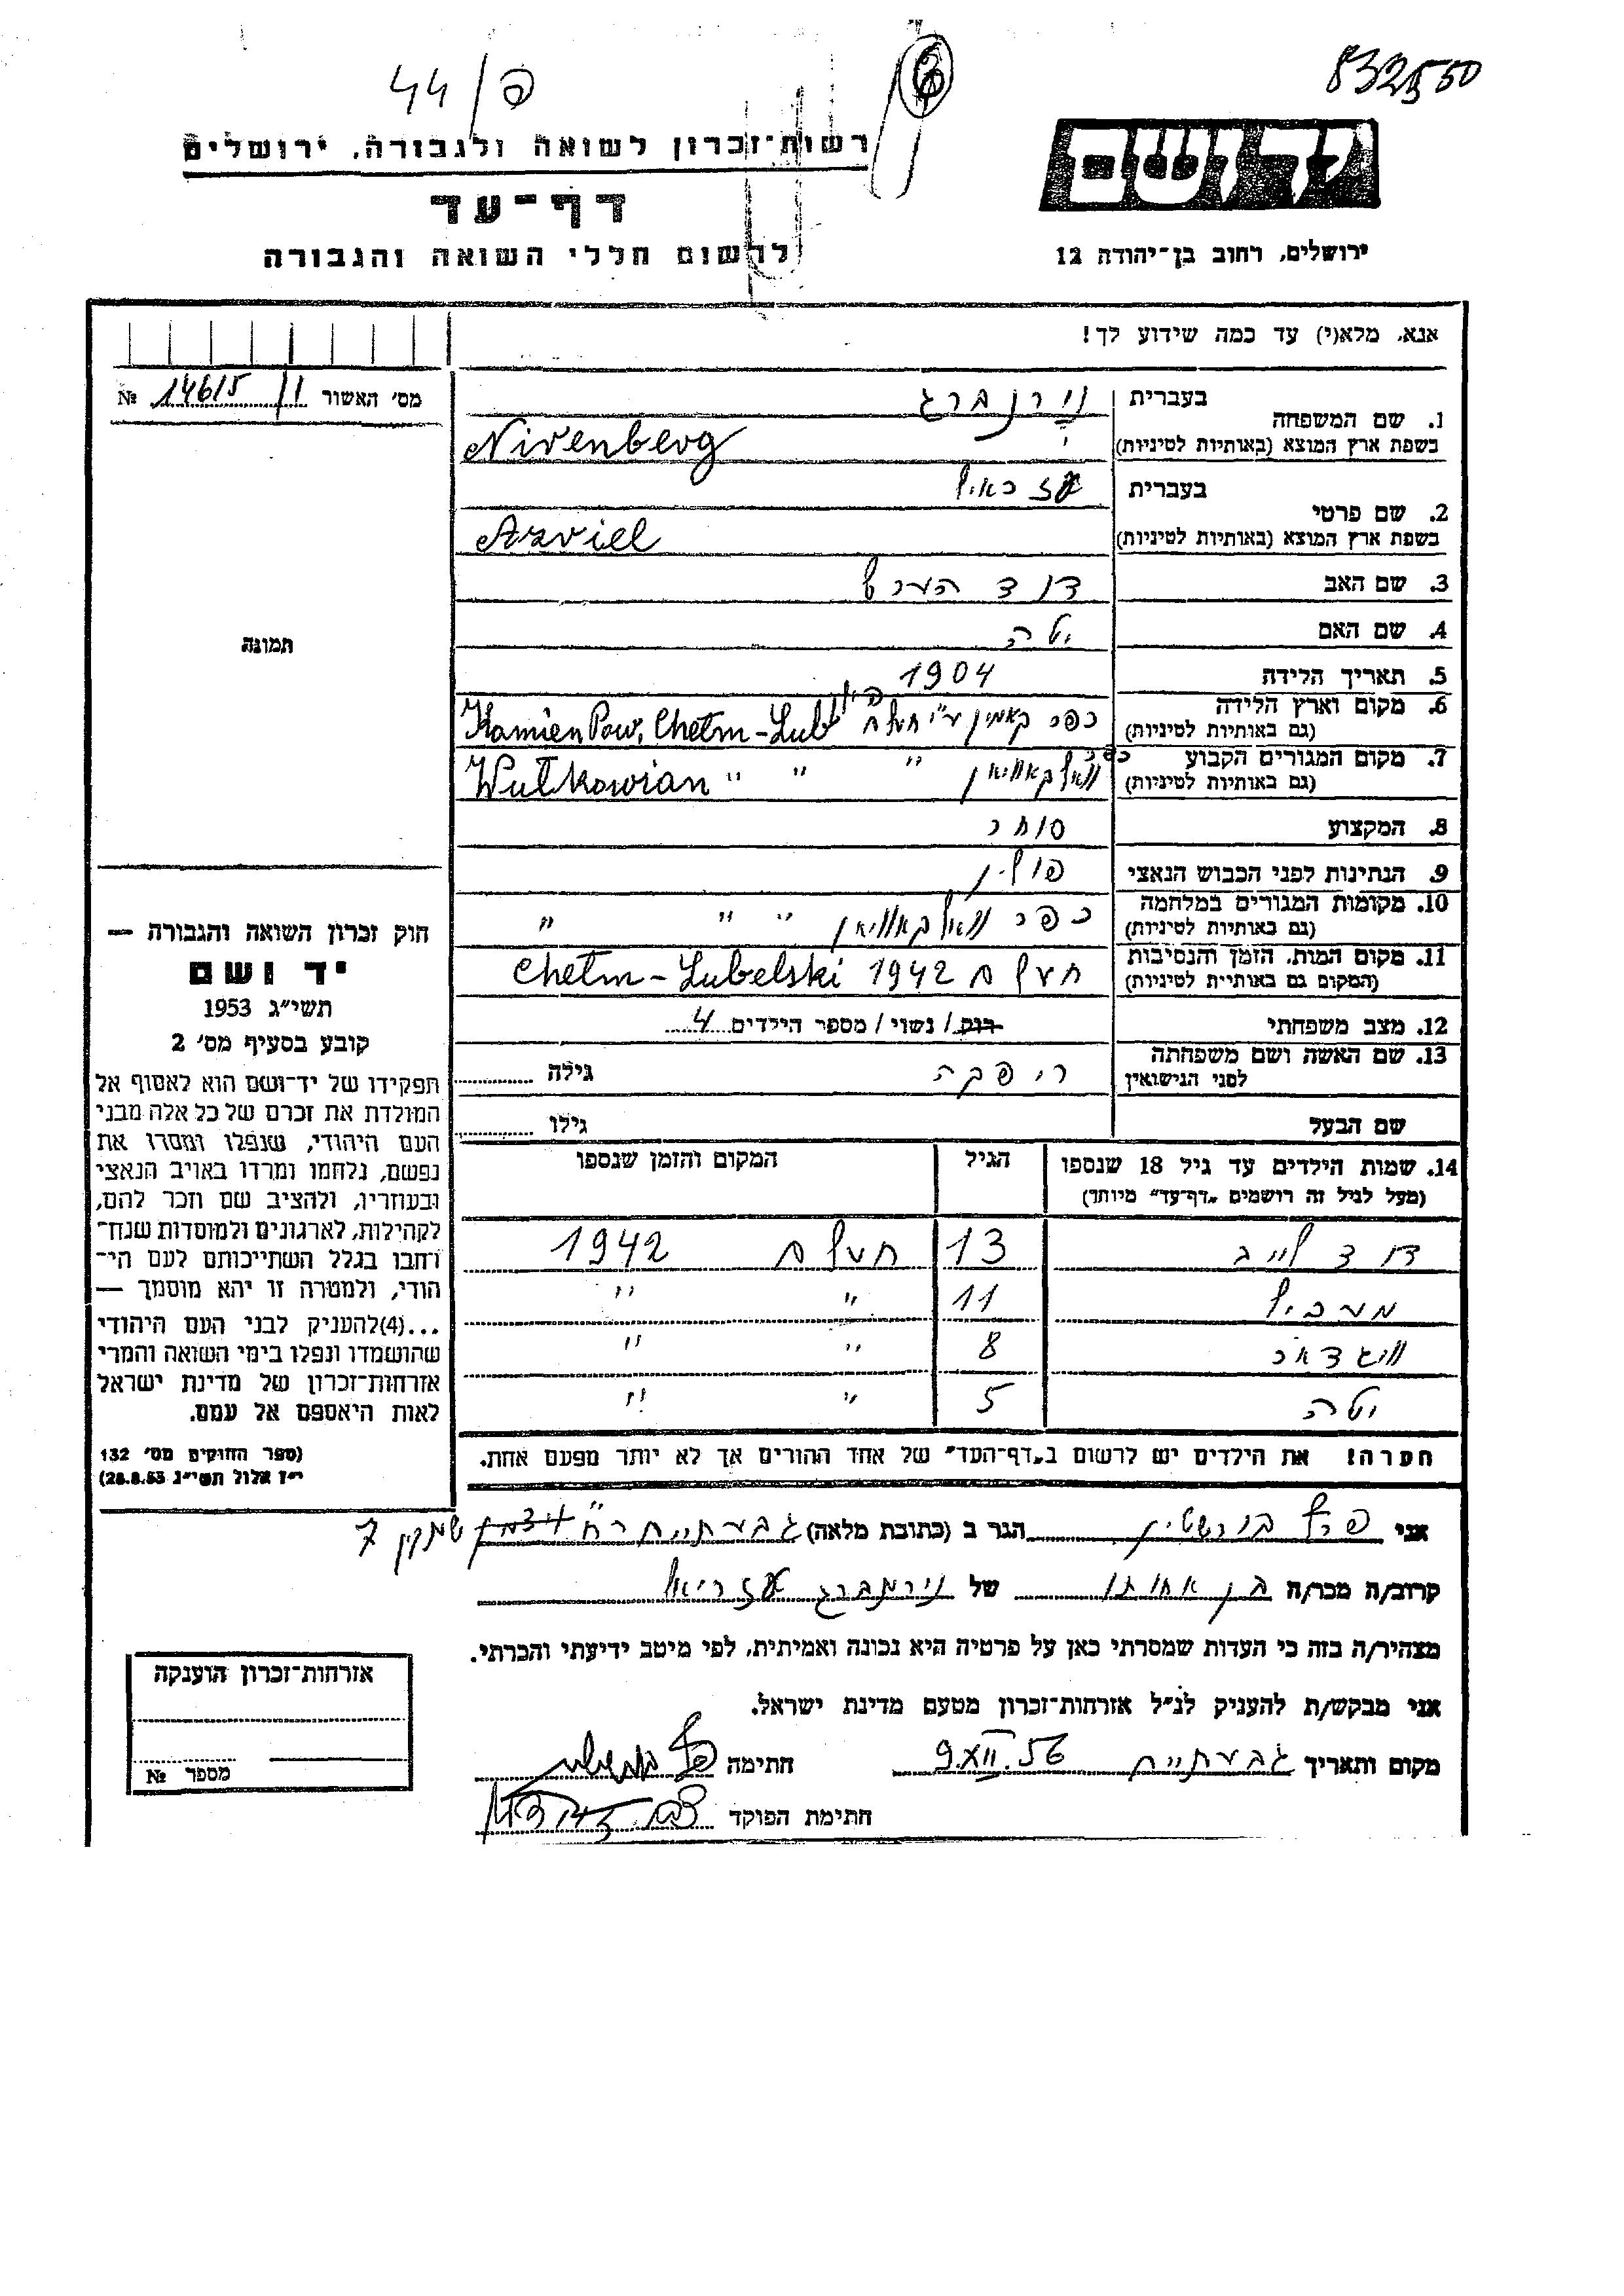 832550
44/פ
יד ושם
רשות־זכרון לשואה ולגבורה, ירושלים
דף־עד
לרשום חללי השואה והגבורה
ירושלים, רחוב בן־יהודה 12
אנא, מלא(י) עד כמה שידוע לך!
מס' האשור 11/ 14615 №
1. שם המשפחה
בעברית נירנברג
בשפת ארץ המוצא (באותיות לטיניות) Nirenberg
2. שם פרטי
בעברית עזראיל
בשפת ארץ המוצא (באותיות לטיניות) Asriel
3. שם האב דוד הערש
4. שם האם יטה
5. תאריך הלידה 1904
6. מקום וארץ הלידה כפר קאמין ע"י חעלם פולין
(גם באותיות לטיניות) Kamien Pow. Chełm-Lub
7. מקום המגורים הקבוע כפר וואלקאוויאן "
(גם באותיות לטיניות) Wułkowian " "
8. המקצוע סוחר
9. הנתינות לפני הכבוש הנאצי פולין
10. מקומות המגורים במלחמה כפר וואלקאוויאן " " "
(גם באותיות לטיניות)
11. מקום המות, הזמן והנסיבות חעלם 1942 Chełm-Lubelski
(המקום גם באותיות לטיניות)
12. מצב משפחתי רוק / נשוי / מספר הילדים 4
13. שם האשה ושם משפחתה ריפקה גילה
לפני הנישואין
שם הבעל גילו
14. שמות הילדים עד גיל 18 שנספו הגיל המקום והזמן שנספו
(מעל לגיל זה רושמים „דף־עד" מיוחד)
דוד לייב 13 חעלם 1942
מערביל 11 " "
וויגדאר 8 " "
יטה 5 " "
חערה! את הילדים יש לרשום ב„דף־העד" של אחד ההורים אך לא יותר מפעם אחת.
תמונה
חוק זכרון השואה והגבורה —
יד ושם
תשי״ג 1953
קובע בסעיף מס' 2
תפקידו של יד־ושם הוא לאסוף אל
המולדת את זכרם של כל אלה מבני
העם היהודי, שנפלו ומסרו את
נפשם, נלחמו ומרדו באויב הנאצי
ובעוזריו, ולהציב שם וזכר להם,
לקהילות, לארגונים ולמוסדות שנח־
רחבו בגלל השתייכותם לעם הי־
הודי, ולמטרה זו יהא מוסמך —
...(4)להעניק לבני העם היהודי
שהושמדו ונפלו בימי השואה והמרי
אזרחות־זכרון של מדינת ישראל
לאות היאספם אל עמם.
(ספר החוקים מס' 132
י״ז אלול תשי״ג 28.8.53)
אני פרץ בורשטין הגר ב (כתובת מלאה) גבעתיים רח' 7
קרוב/ה מכר/ה בן אחותו של נירנברג עזריאל
מצהיר/ה בזה כי העדות שמסרתי כאן על פרטיה היא נכונה ואמיתית, לפי מיטב ידיעתי והכרתי.
אני מבקש/ת להעניק לנ״ל אזרחות־זכרון מטעם מדינת ישראל.
מקום ותאריך גבעתיים 9.XII.56 חתימה
חתימת הפוקד
אזרחות־זכרון הוענקה
מספר №